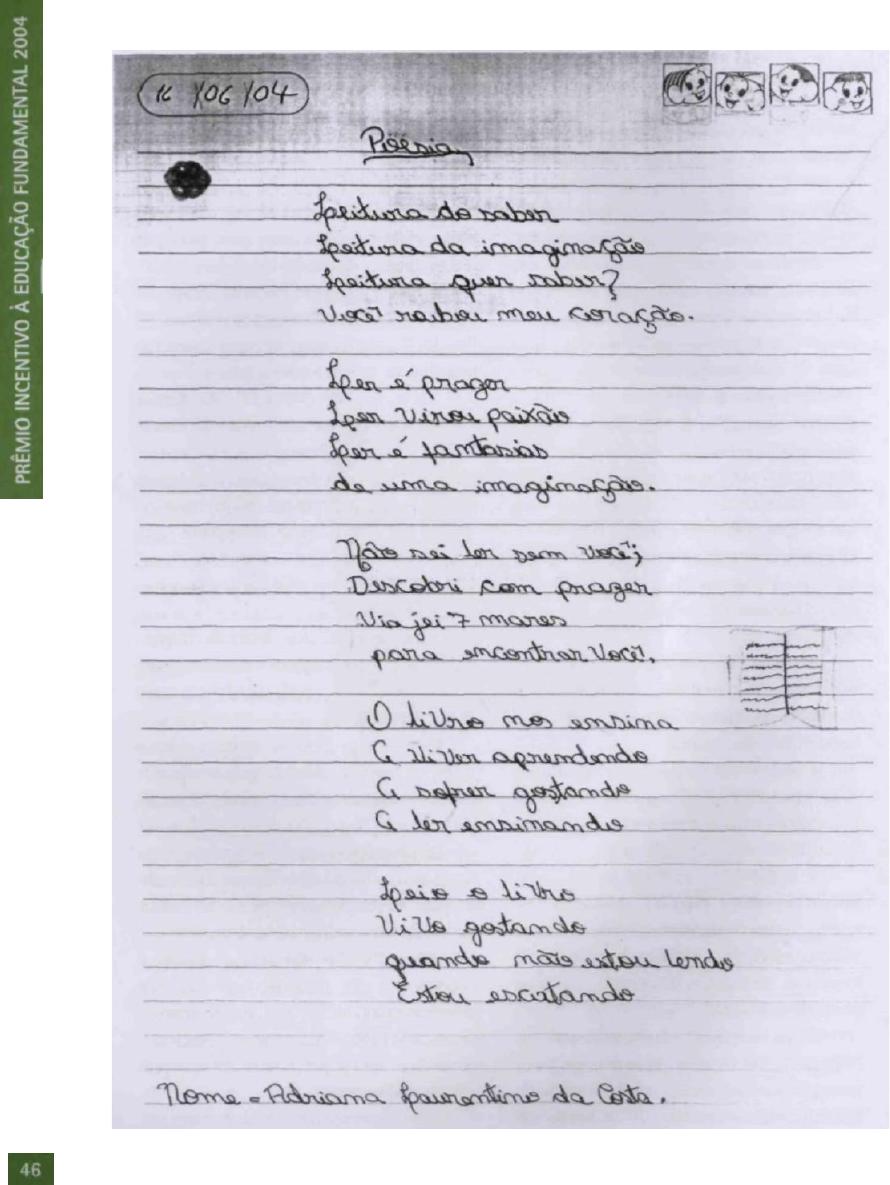 PRÊMIO INCENTIVO À EDUCAÇÃO FUNDAMENTAL 2004
16 /06 /04
Poesia
Leitura do saber
Leitura da imaginação
Leitura quer saber?
Você roubou meu coração.
Ler é prazer
Ler virou paixão
Ler é fantasias
de uma imaginação.
Não sei ler sem você;
Descobri com prazer
Via jei 7 mares
para encontrar Você.
O livro nos ensina
A viver aprendendo
A sofrer gostando
A ler ensinando
Leio o livro
Vivo gostando
quando não estou lendo
Estou escutando
Nome = Adriana Laurentino da Costa.
46